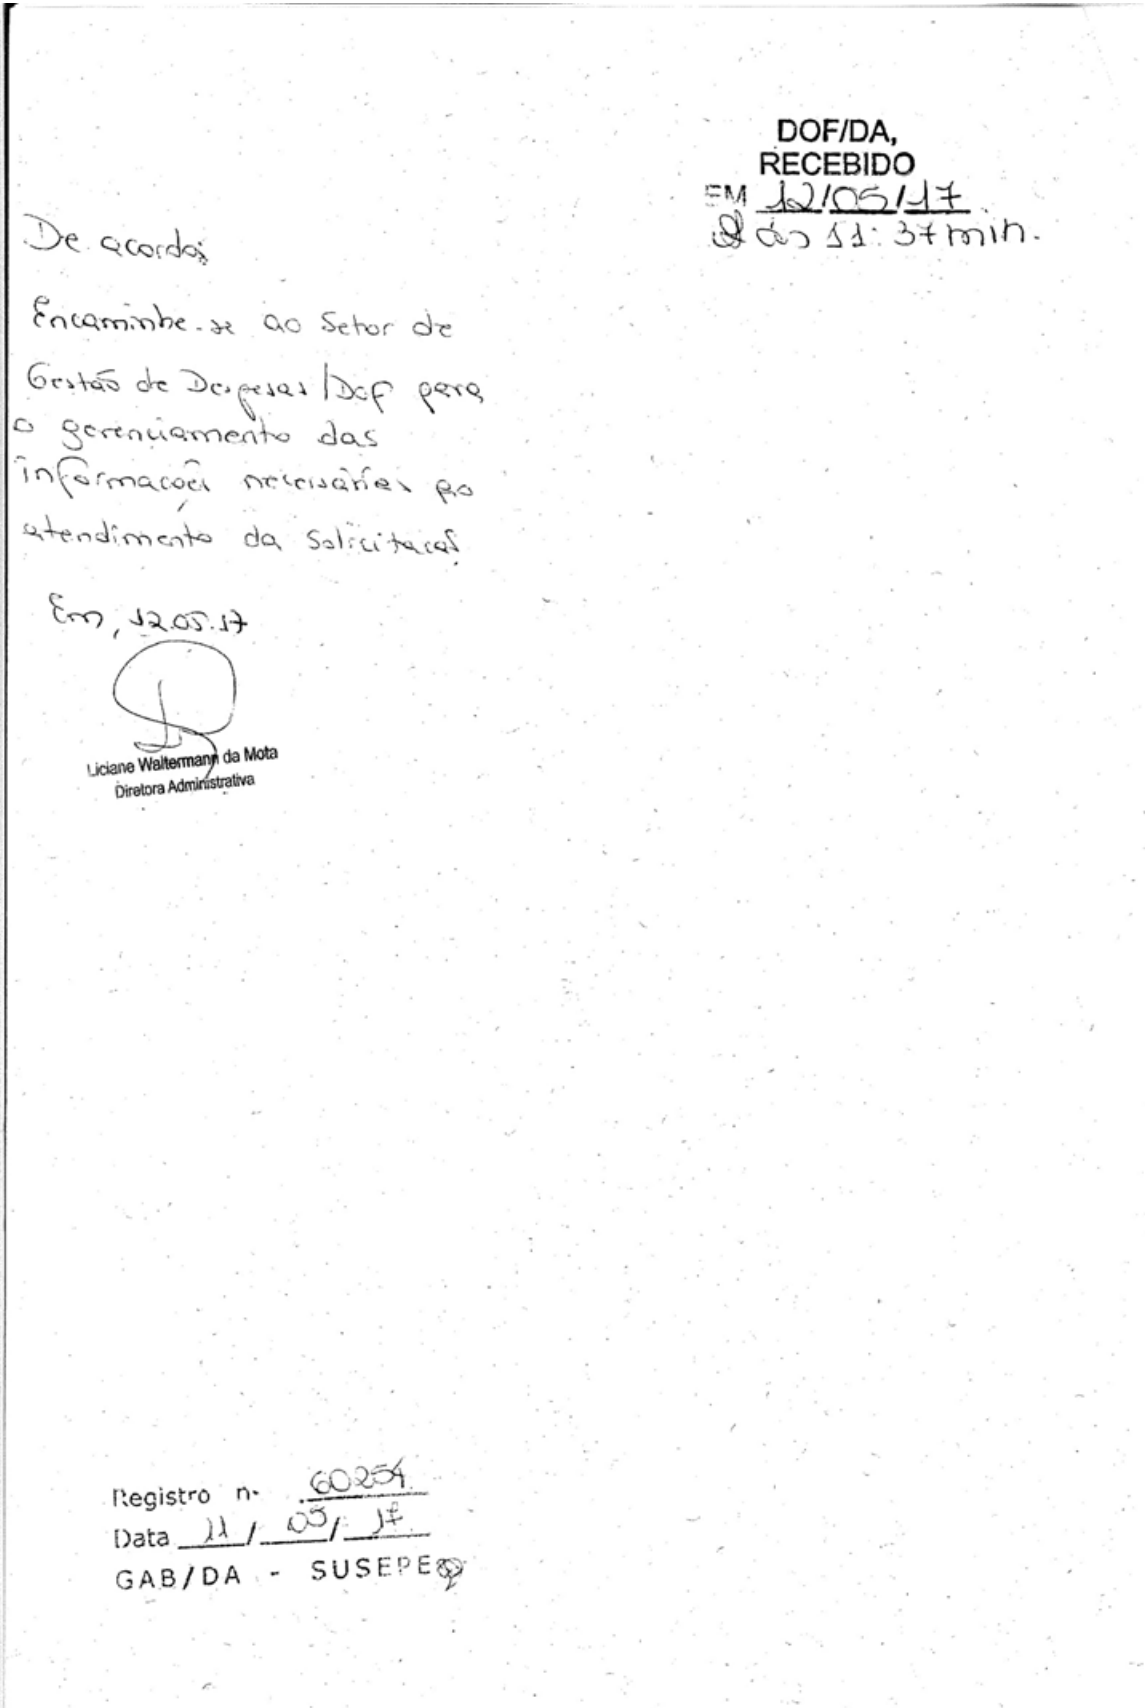 DOF/DA,
RECEBIDO
EM 12/05/17
às 11:37min.
De acordo;
Encaminhe-se ao Setor de
Gestão de Despesas/DOF para
o gerenciamento das
informações necessárias ao
atendimento da solicitação.
Em, 12.05.17
Liciane Waltermann da Mota
Diretora Administrativa
Registro n. 60254
Data 11/05/17
GAB/DA - SUSEPE